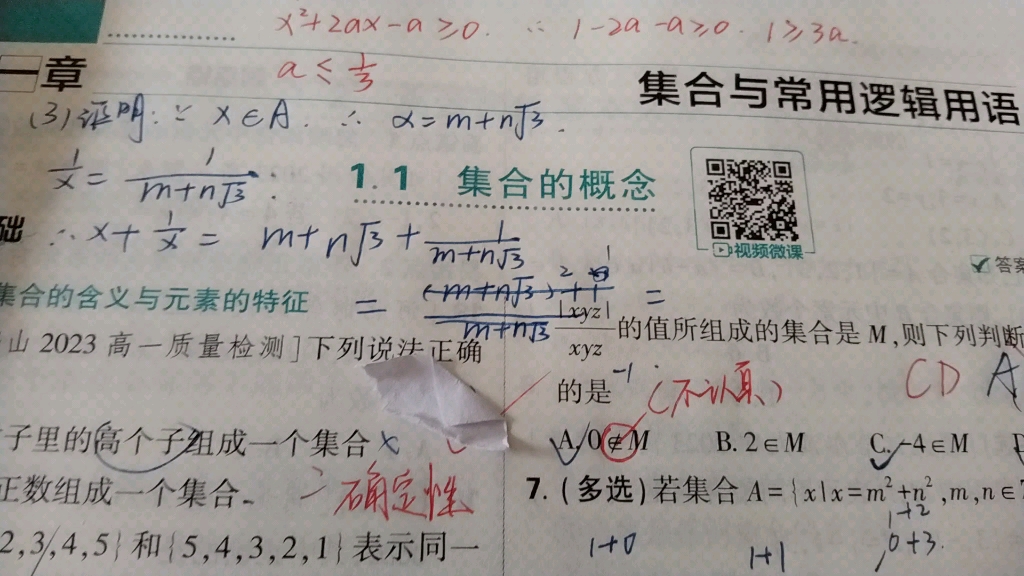 x²+2ax-a≥0. ∵ 1-2a-a≥0. 1≥3a.
a≤1/3
一章
集合与常用逻辑用语
(3)证明:∵ x∈A. ∴ α=m+n√3.
1/x = 1/(m+n√3).
1.1 集合的概念
视频微课
础
∴ x+1/x = m+n√3+1/(m+n√3)
答案
集合的含义与元素的特征
= ((m+n√3)²+1)/(m+n√3) =
山 2023 高一质量检测]下列说法正确
子里的高个子组成一个集合 ×
正数组成一个集合.
确定性
2,3,4,5}和{5,4,3,2,1}表示同一
|xyz|/xyz 的值所组成的集合是 M,则下列判断
的是
(不认真)
CD A
A. 0∉M B. 2∈M C. -4∈M
7. (多选)若集合 A={x|x=m²+n²,m,n∈
1+2
1+0 1+1 0+3.